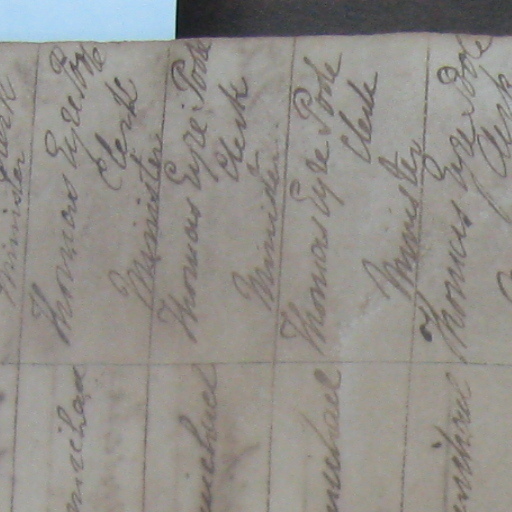 Clerk
Minister
michael Thomas Eyre Poole
Clerk
Minister
michael Thomas Eyre Poole
Clerk
Minister
michael Thomas Eyre Poole
Clerk
Minister
michael Thomas Eyre Poole
Clerk